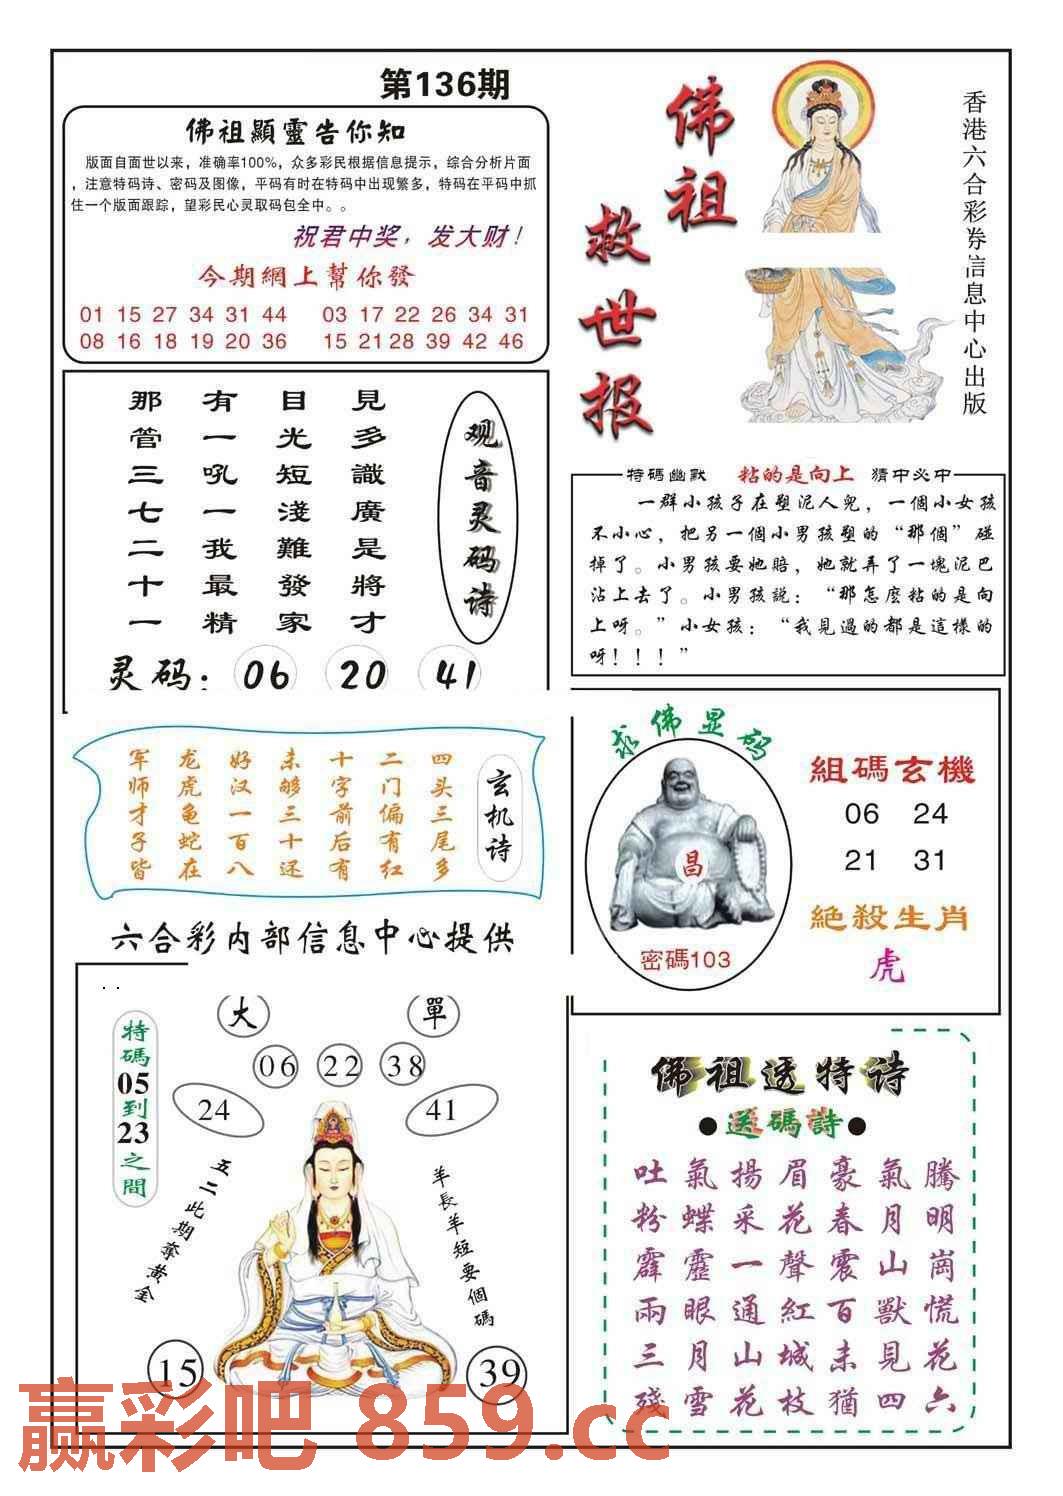 第136期
佛祖顯靈告你知
版面自面世以来，准确率100%，众多彩民根据信息提示，综合分析片面
，注意特码诗、密码及图像，平码有时在特码中出现繁多，特码在平码中抓
住一个版面跟踪，望彩民心灵取码包全中。。
祝君中奖，发大财！
今期網上幫你發
01 15 27 34 31 44 03 17 22 26 34 31
08 16 18 19 20 36 15 21 28 39 42 46
佛祖
救世报
香港六合彩券信息中心出版
观音灵码诗
見多識廣是將才
目光短淺難發家
有一吼一我最精
那管三七二十一
灵码：06 20 41
特碼幽默 粘的是向上 猜中必中
一群小孩子在塑泥人兒，一個小女孩
不小心，把另一個小男孩塑的“那個”碰
掉了。小男孩要她賠，她就弄了一塊泥巴
沾上去了。小男孩説：“那怎麽粘的是向
上呀。”小女孩：“我見過的都是這樣的
呀！！！”
玄机诗
四头三尾多
二门偏有红
十字前后有
未够三十还
好汉一百八
龙虎龟蛇在
军师才子皆
六合彩内部信息中心提供
求佛显码
昌
密碼103
組碼玄機
06 24
21 31
絶殺生肖
虎
. .
大 單
特碼05到23之間
06 22 38
24 41
五二此期奪黄金
羊長羊短要個碼
15 39
佛祖透特诗
●送碼詩●
吐氣揚眉豪氣騰
粉蝶采花春月明
霹靂一聲震山崗
兩眼通紅百獸慌
三月山城未見花
殘雪花枝猶四六
赢彩吧 859.cc